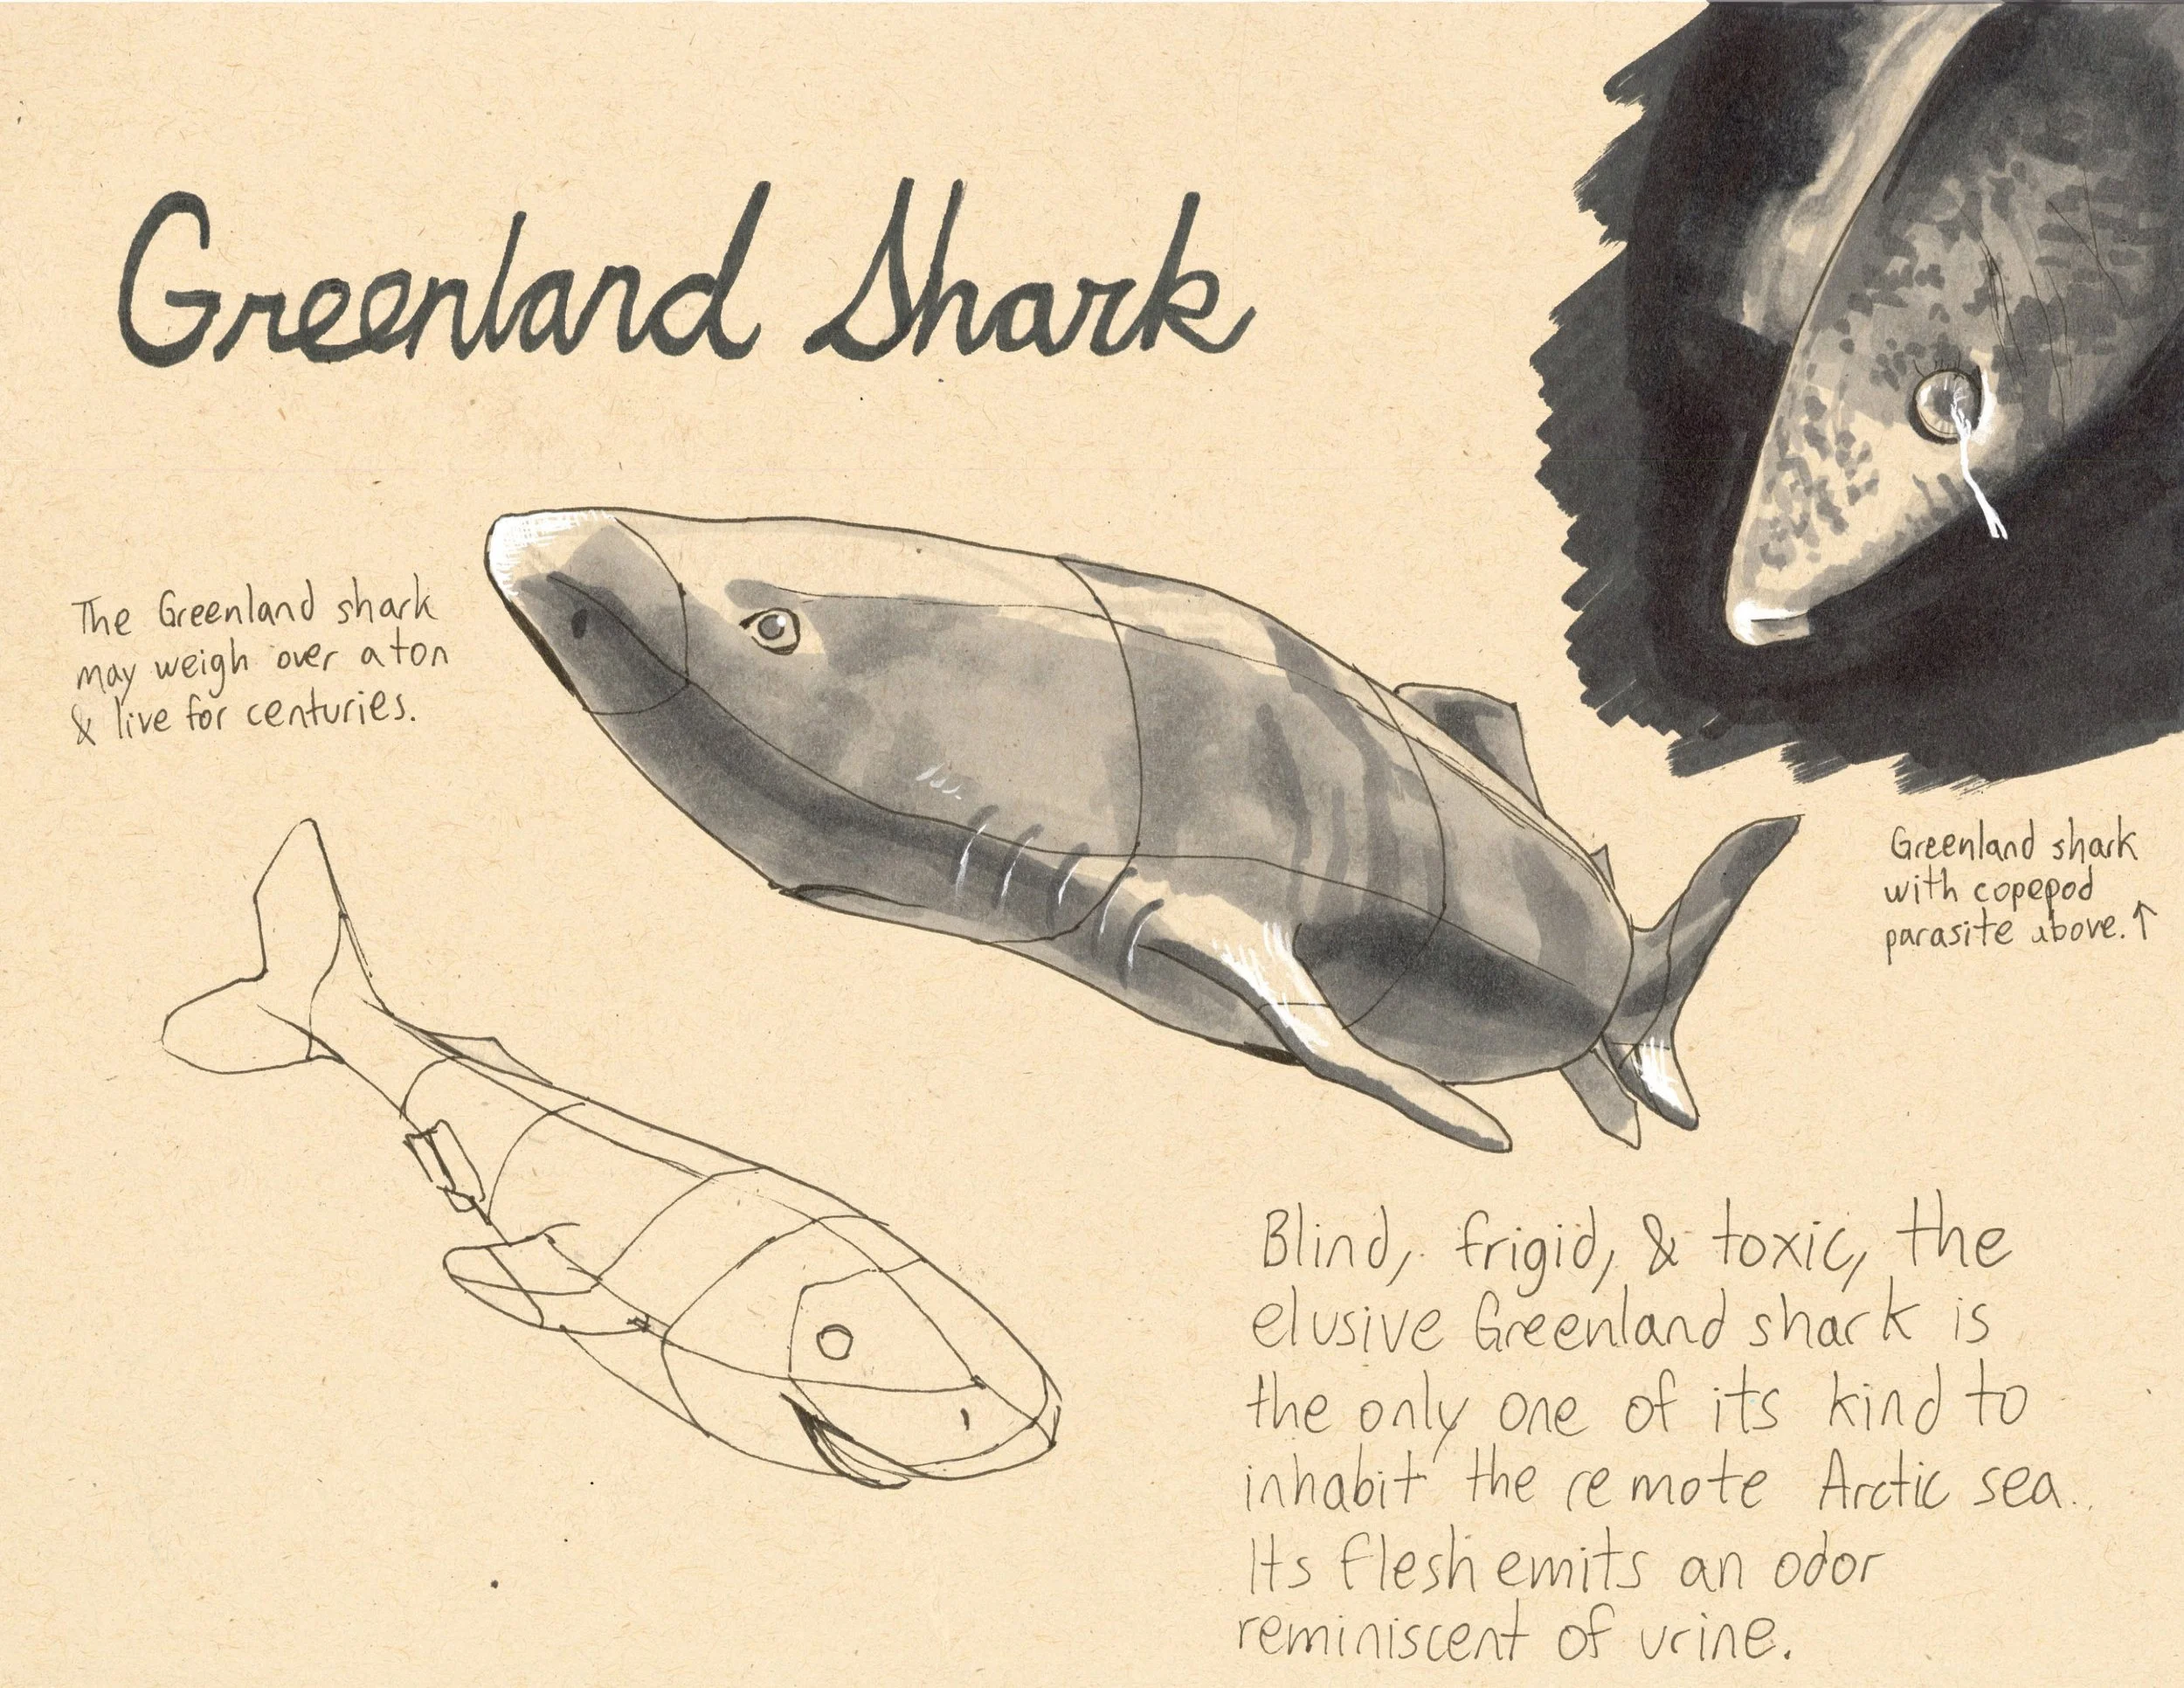 Greenland Shark
The Greenland shark
may weigh over a ton
& live for centuries.
Greenland shark
with copepod
parasite above.↑
Blind, frigid, & toxic, the
elusive Greenland shark is
the only one of its kind to
inhabit the remote Arctic sea.
Its flesh emits an odor
reminiscent of urine.